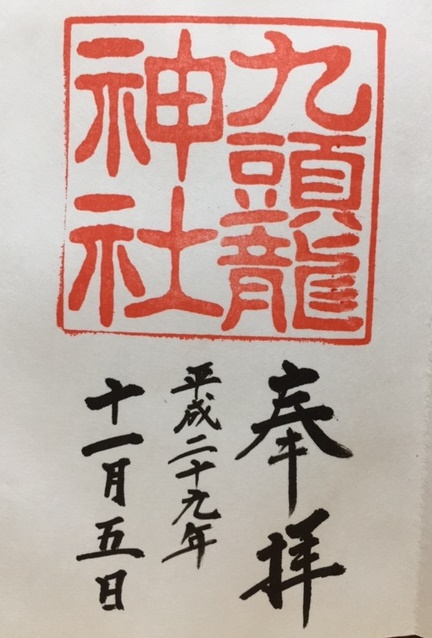 九頭龍
神社
奉拝
平成二十九年
十一月五日